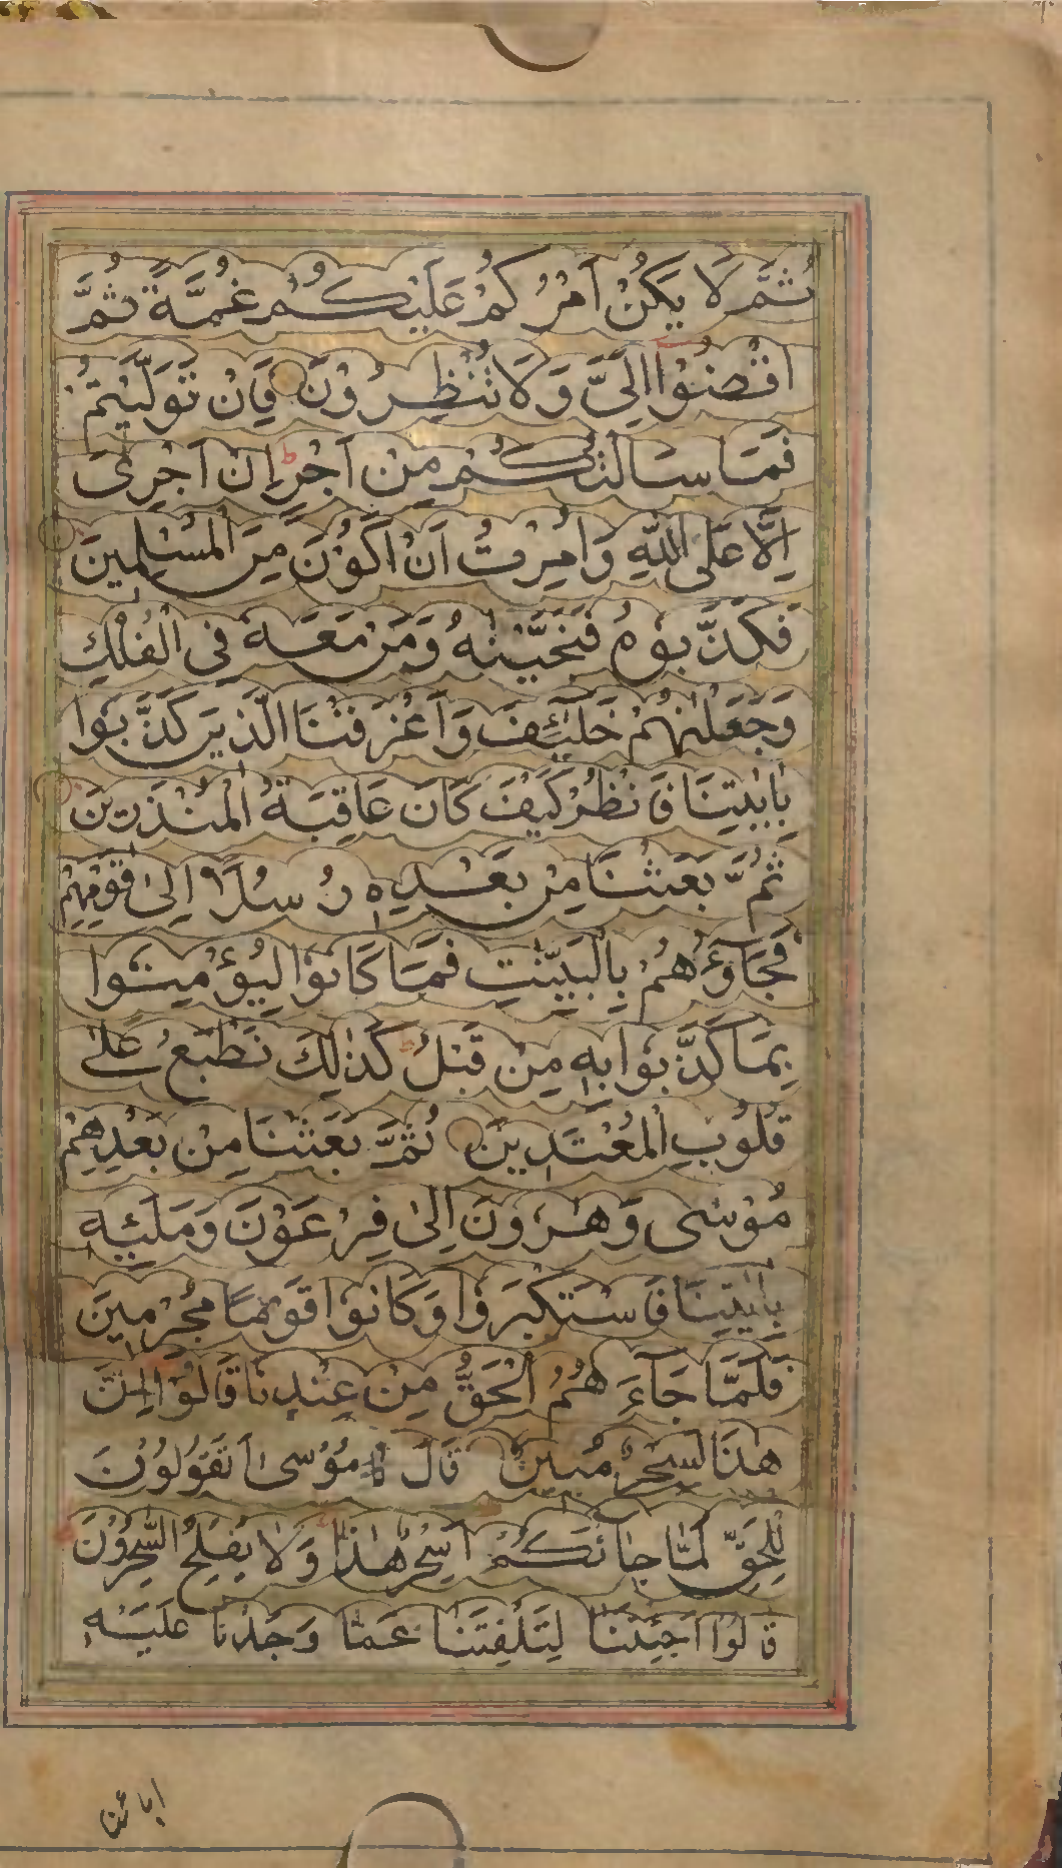 ثُمَّ لَا يَكُنْ اَمْرُكُمْ عَلَيْكُمْ غُمَّةً ثُمَّ
اقْضُوْا اِلَيَّ وَلَا تُنْظِرُوْنَ فَاِنْ تَوَلَّيْتُمْ
فَمَا سَاَلْتُكُمْ مِنْ اَجْرٍ ط اِنْ اَجْرِىَ
اِلَّا عَلَى اللّٰهِ وَاُمِرْتُ اَنْ اَكُوْنَ مِنَ الْمُسْلِمِيْنَ
فَكَذَّبُوْهُ فَنَجَّيْنٰهُ وَمَنْ مَعَهٗ فِى الْفُلْكِ
وَجَعَلْنٰهُمْ خَلٰٓئِفَ وَاَغْرَقْنَا الَّذِيْنَ كَذَّبُوْا
بِاٰيٰتِنَا فَانْظُرْ كَيْفَ كَانَ عَاقِبَةُ الْمُنْذَرِيْنَ
ثُمَّ بَعَثْنَا مِنْ بَعْدِهٖ رُسُلًا اِلٰى قَوْمِهِمْ
فَجَاؤُهُمْ بِالْبَيِّنٰتِ فَمَا كَانُوْا لِيُؤْمِنُوْا
بِمَا كَذَّبُوْا بِهٖ مِنْ قَبْلُ كَذٰلِكَ نَطْبَعُ عَلٰى
قُلُوْبِ الْمُعْتَدِيْنَ ثُمَّ بَعَثْنَا مِنْ بَعْدِهِمْ
مُوْسٰى وَهٰرُوْنَ اِلٰى فِرْعَوْنَ وَمَلَئِهٖ
بِاٰيٰتِنَا فَاسْتَكْبَرُوْا وَكَانُوْا قَوْمًا مُجْرِمِيْنَ
فَلَمَّا جَآءَهُمُ الْحَقُّ مِنْ عِنْدِنَا قَالُوْا اِنَّ
هٰذَا لَسِحْرٌ مُبِيْنٌ قَالَ مُوْسٰى اَتَقُوْلُوْنَ
لِلْحَقِّ لَمَّا جَائَكُمْ اَسِحْرٌ هٰذَا وَلَا يُفْلِحُ السّٰحِرُوْنَ
قَالُوْا اَجِئْتَنَا لِتَلْفِتَنَا عَمَّا وَجَدْنَا عَلَيْهِ
اباءنا